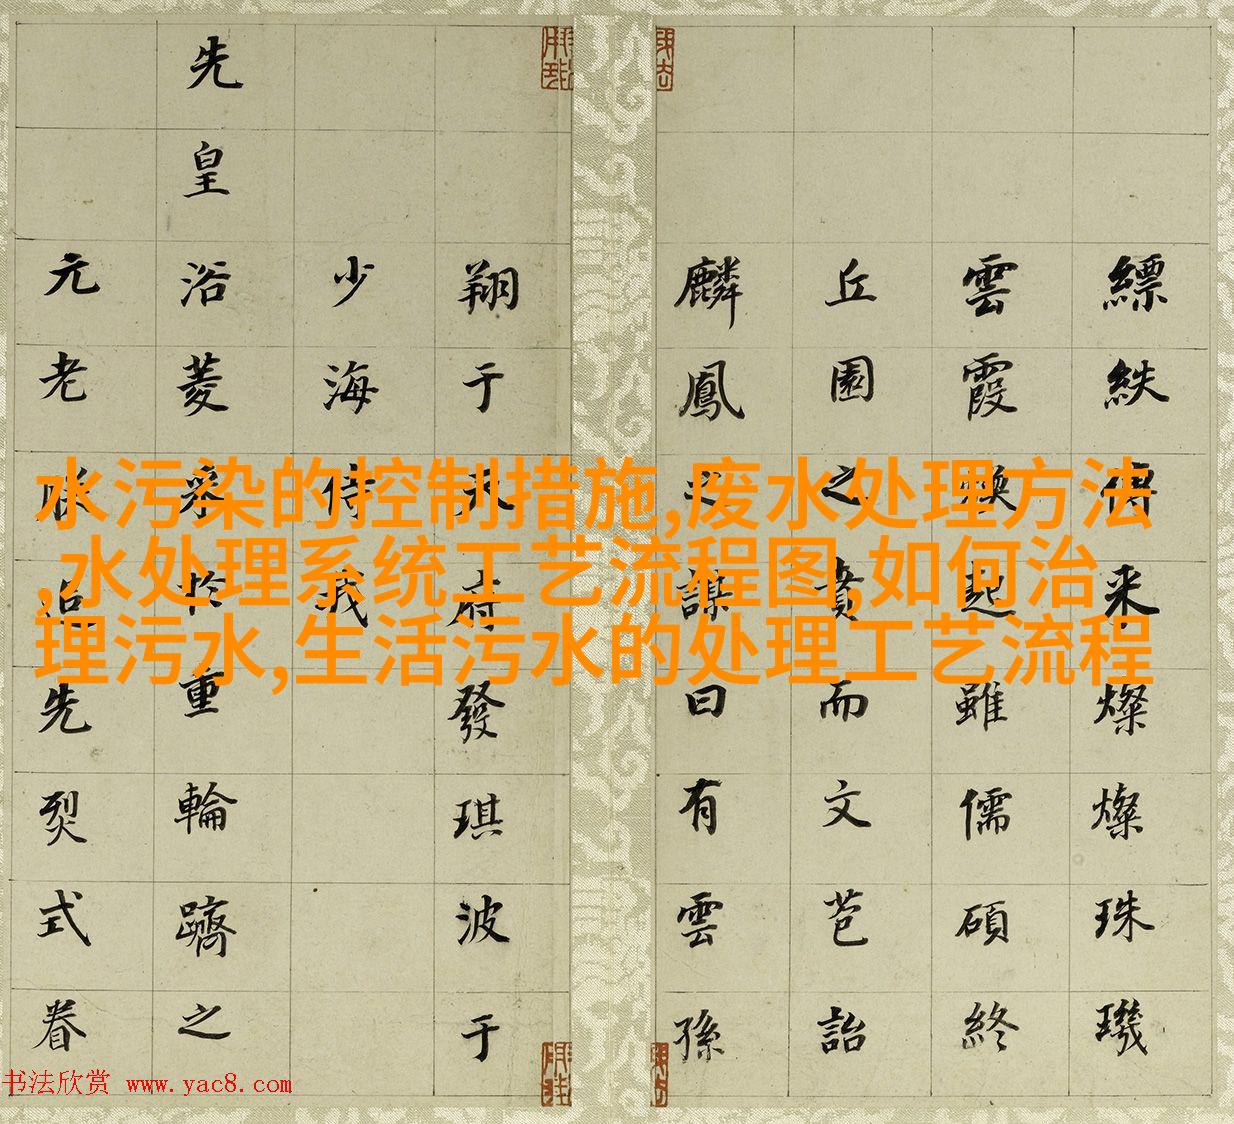 縹紩来燦燦珠璣
雲霞煥起雖儒碩終
丘園之賁而文苞詒
麟鳳之謀曰有雲孫
翔于天府發琪波于
少海侍我
先皇浴菱采於重輪躋之
元老朕追先烈式眷
水污染的控制措施,废水处理方法
,水处理系统工艺流程图,如何治
理污水,生活污水的处理工艺流程
书法欣赏 www.yac8.com